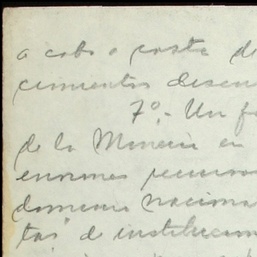 a cabo o costa de
cimientos desen
7º.- Un f
de la Mineria en
enormes recursos
dominio naciona
tas" de institucion